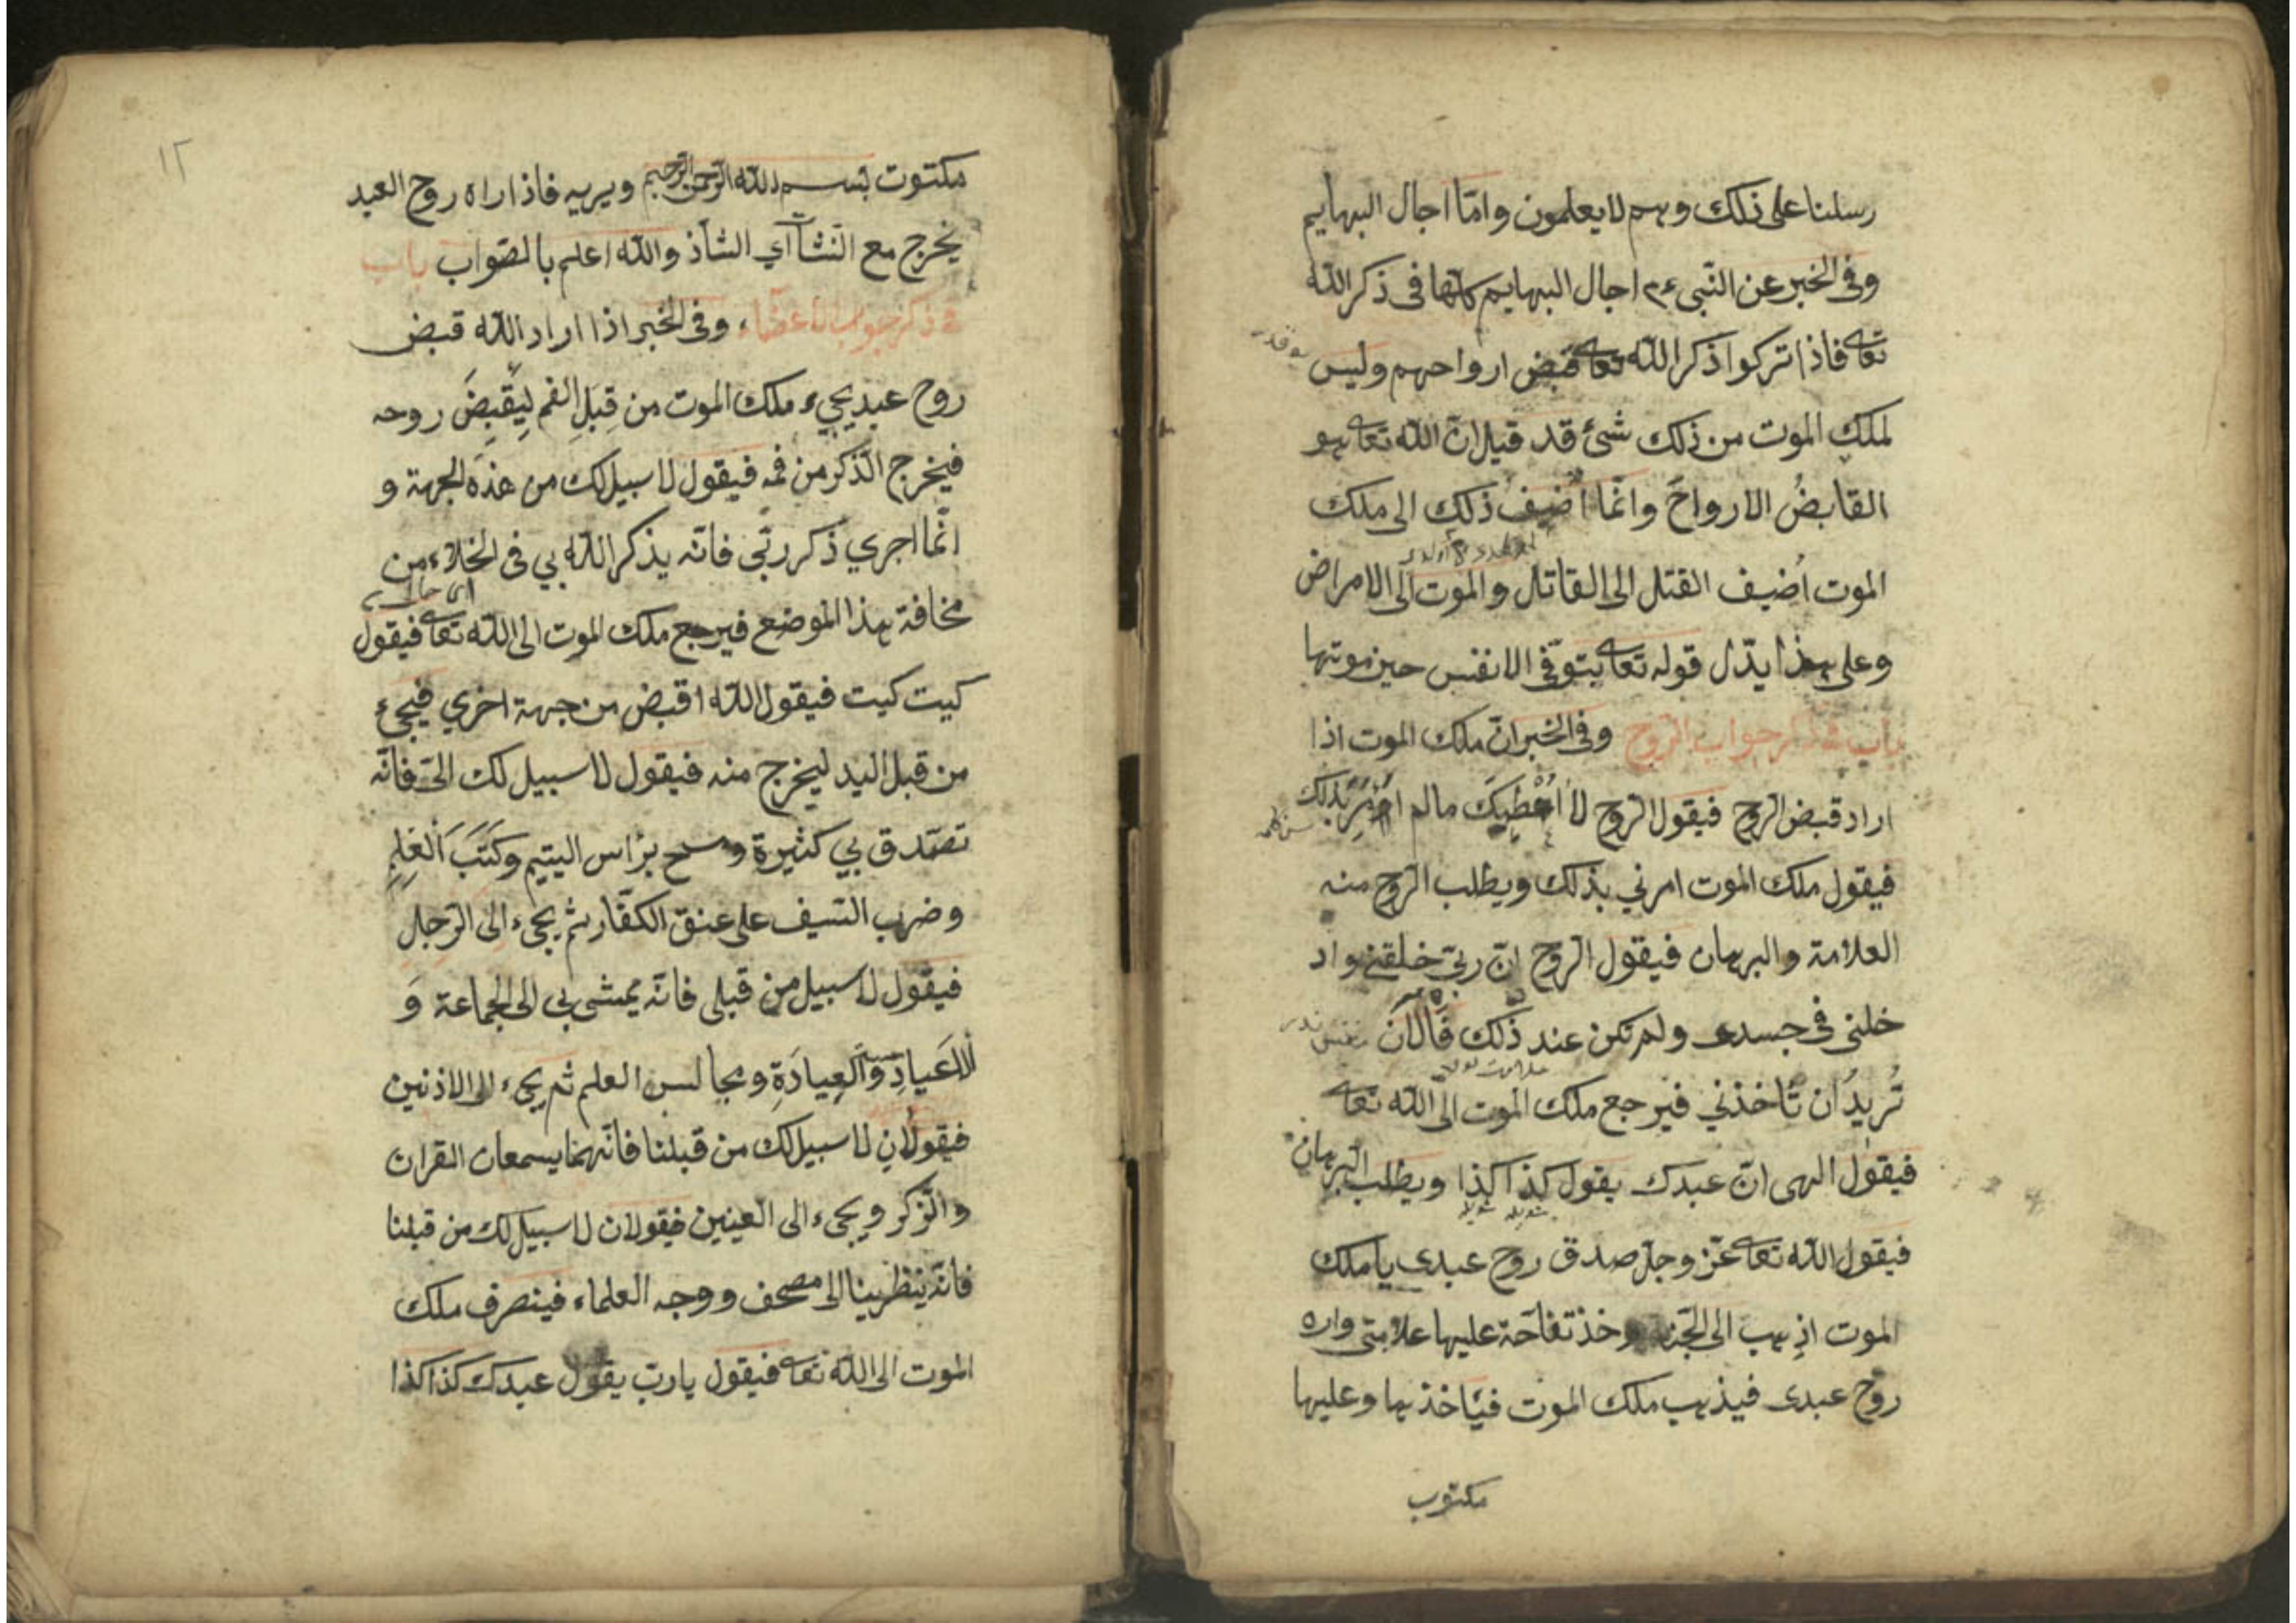 رسلنا على ذلك وهم لا يعلمون وامّا اجال البهايم
وفى الخبر عن النّبى ءم اجال البهايم كلّها فى ذكر الله
تعا فاذا تركوا ذكر الله تعا قبض ارواحهم وليس
لملك الموت من ذلك شئ قد قيل انّ الله تعا هو
القابضُ الارواحَ وانّما اُضيفُ ذلك الى ملك
الموت اُضيف القتل الى القاتل والموت الى الامراض
وعلى هذا يدّل قوله تعا يتوفّى الانفس حين موتها
باب فى ذكر جواب الرّوح وفى الخبر انّ ملك الموت اذا
اراد قبض الرّوح فيقول الرّوح لا اُعْطِيكَ مالم اُؤْمَرْ بذلك
فيقول ملك الموت امرني بذلك ويطلب الرّوح منه
العلامة والبرهان فيقول الرّوح انّ ربّى خلقنى واد
خلنى فى جسدى ولم تكن عند ذلك فَالآنَ
تُريدُ ان تَاخذني فيرجع ملك الموت الى الله تعا
فيقول الهى انّ عبدك يقول كذا كذا ويطلب البرهان
فيقول الله تعا عزّ وجلّ صدق روح عبدى يا ملك
الموت اذهب الى الجنّة وخذ تفّاحة عليها علامتى واره
روح عبدى فيذهب ملك الموت فيَاخذها وعليها
مكتوب
١٢
مكتوت بسم الله الرّحمن الرّحيم ويريه فاذا راه روح العبد
يخرج مع النّشآ اي الشّاذ والله اعلم بالصّواب باب
فى ذكر جواب الاعضآء وفى الخبر اذا اراد الله قبض
روح عبد يجيء ملك الموت من قِبَلِ الفم لِيَقْبِضَ روحه
فيخرج الذّكر من فمه فيقول لا سبيل لك من هذه الجهة و
انّما اجري ذكر ربّي فانّه يذكر الله بي فى الخلاء من
مخافة هذا الموضع فيرجع ملك الموت الى الله تعا فيقول
كيت كيت فيقول الله اقبض من جهة اخري فيجيء
من قبل اليد ليخرج منه فيقول لا سبيل لك الىّ فانّه
تصّدق بي كثيرة ومسح برَاس اليتيم وكَتَبَ العِلمِ
وضرب السّيف على عنق الكفّار ثم يجيء الى الرّجلِ
فيقول لا سبيل من قبلى فانّه يمشى بى الى الجماعة وَ
الاَعيادِ والعِيادَةِ ومجالس العلم ثم يجيء الى الاذنين
فيقولانِ لا سبيل لك من قبلنا فانّهما يسمعان القران
والذّكر ويجيء الى العينين فيقولان لا سبيل لك من قبلنا
فانّه ينظر بنا الى مصحف ووجه العلماء فينصرف ملك
الموت الى الله تعا فيقول يا ربّ يقول عبدك كذا كذا